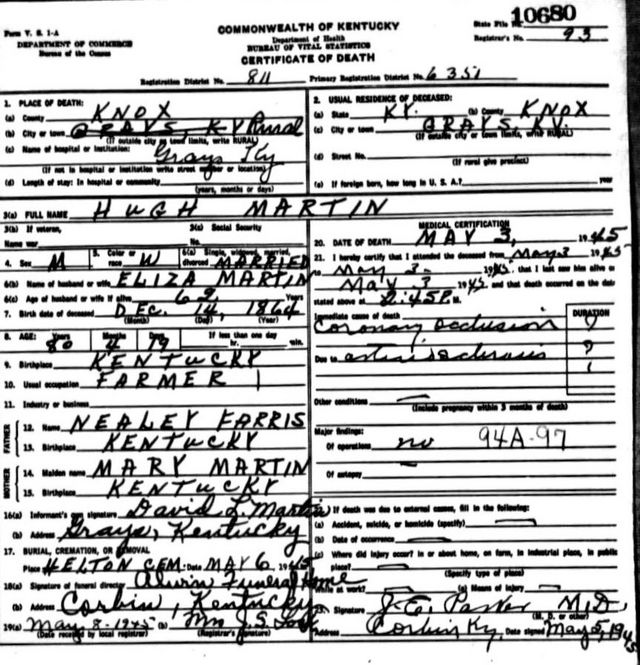 Form V. S. 1-A
DEPARTMENT OF COMMERCE
Bureau of the Census
COMMONWEALTH OF KENTUCKY
Department of Health
BUREAU OF VITAL STATISTICS
CERTIFICATE OF DEATH
State File No. 10680
Registrar's No. 93
Registration District No. 811 Primary Registration District No. 6351
1. PLACE OF DEATH:
(a) County KNOX
(b) City or town GRAYS, KY Rural
(If outside city or town limits, write RURAL)
(c) Name of hospital or institution:
Grays Ky
(If not in hospital or institution write street number or location)
(d) Length of stay: In hospital or community
(years, months or days)
2. USUAL RESIDENCE OF DECEASED:
(a) State KY. (b) County KNOX
(c) City or town GRAYS KY.
(If outside city or town limits, write RURAL)
(d) Street No.
(If rural give precinct)
(e) If foreign born, how long in U. S. A.? year
3(a) FULL NAME HUGH MARTIN
3(b) If veteran, 3(c) Social Security
Name war No.
4. Sex M 5. Color or race W 6(a) Single, widowed, married, divorced MARRIED
6(b) Name of husband or wife ELIZA MARTIN
6(c) Age of husband or wife if alive 62 Years
7. Birth date of deceased DEC. 14, 1864
(Month) (Day) (Year)
8. AGE: Years Months Days If less than one day
80 4 19 hr. min.
9. Birthplace KENTUCKY
10. Usual occupation FARMER
11. Industry or business
FATHER
12. Name NEALEY FARRIS
13. Birthplace KENTUCKY
MOTHER
14. Maiden name MARY MARTIN
15. Birthplace KENTUCKY
16(a) Informant's own signature David L. Martin
(b) Address Grays, Kentucky
17. BURIAL, CREMATION, OR REMOVAL
Place HELTON CEM. Date MAY 6 1945
18(a) Signature of funeral director Funeral Home
(b) Address Corbin, Kentucky
19(a) May 8-1945 (b) Mrs J.S.
(Date received by local registrar) (Registrar's Signature)
MEDICAL CERTIFICATION
20. DATE OF DEATH MAY 3, 1945
21. I hereby certify that I attended the deceased from May 3 1945
to May 3- 1945 that I last saw him alive on
May 3 1945 and that death occurred on the date
stated above at 2:45P. M.
Immediate cause of death DURATION
Coronary occlusion ?
Due to ?
Other conditions
(Include pregnancy within 3 months of death)
Major findings:
Of operations no 94A-97
Of autopsy
22. If death was due to external causes, fill in the following:
(a) Accident, suicide, or homicide (specify)
(b) Date of occurrence
(c) Where did injury occur? In or about home, on farm, in industrial place, in public
place?
(Specify type of place)
While at work? (e) Means of injury
23. Signature J.E. Parker M.D.
(M. D. or other)
Address Corbin Ky Date signed May 5, 1945